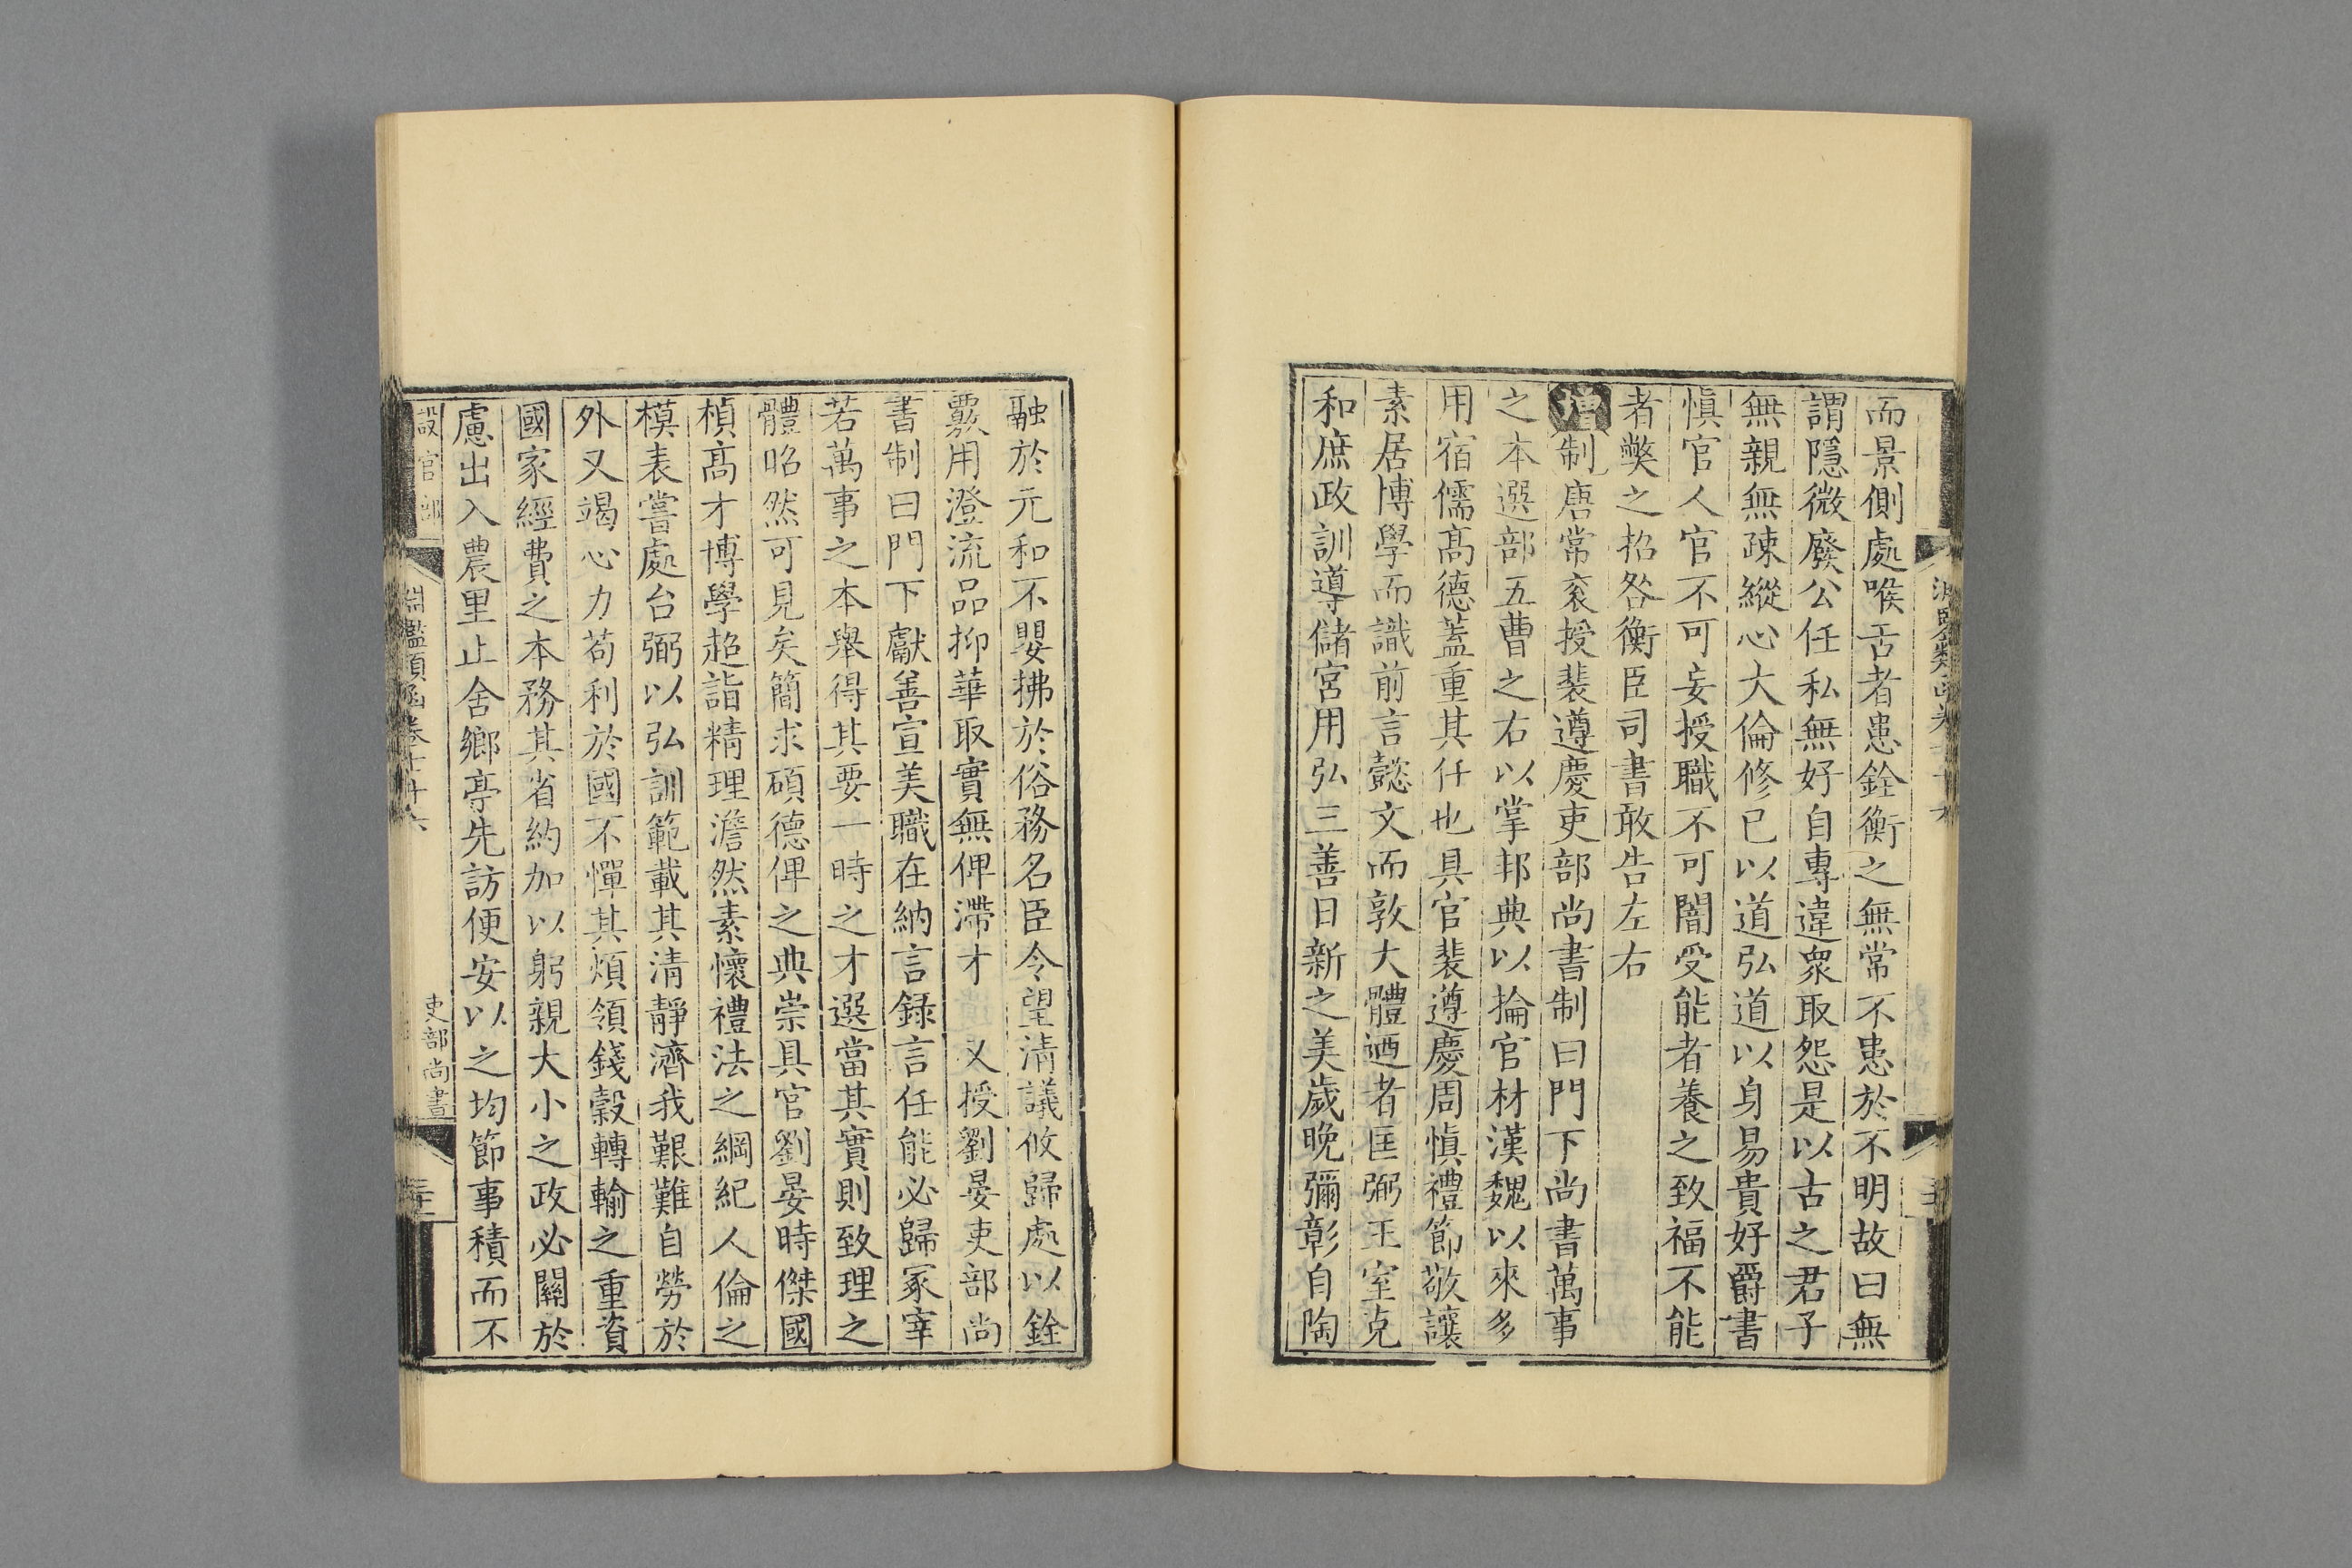 而景側處喉舌者患銓衡之無常不患於不明故曰無
謂隱微廢公任私無好自專違衆取怨是以古之君子
無親無疎縱心大倫修已以道弘道以身易貴好爵書
慎官人官不可妄授職不可闇受能者養之致福不能
者獘之招咎衡臣司書敢告左右
增制唐常衮授裴遵慶吏部尚書制曰門下尚書萬事
之本選部五曹之右以掌邦典以掄官材漢魏以來多
用宿儒髙德葢重其任也具官裴遵慶周慎禮節敬讓
素居博學而識前言懿文而敦大體迺者匡弼王室克
和庶政訓導儲宮用弘三善日新之美歲晚彌彰自陶
融於元和不嬰拂於俗務名臣令望清議攸歸處以銓
覈用澄流品抑華取實無俾滯才 又授劉晏吏部尚
書制曰門下獻善宣美職在納言録言任能必歸冢宰
若萬事之本舉得其要一時之才選當其實則致理之
體昭然可見矣簡求碩德俾之典崇具官劉晏時傑國
楨髙才博學超詣精理澹然素懷禮法之綱紀人倫之
模表嘗處台弼以弘訓範載其清靜濟我艱難自勞於
外又竭心力苟利於國不憚其煩領錢穀轉輸之重資
國家經費之本務其省約加以躬親大小之政必關於
慮出入農里止舍鄉亭先訪便安以之均節事積而不
設官部
吏部尚書